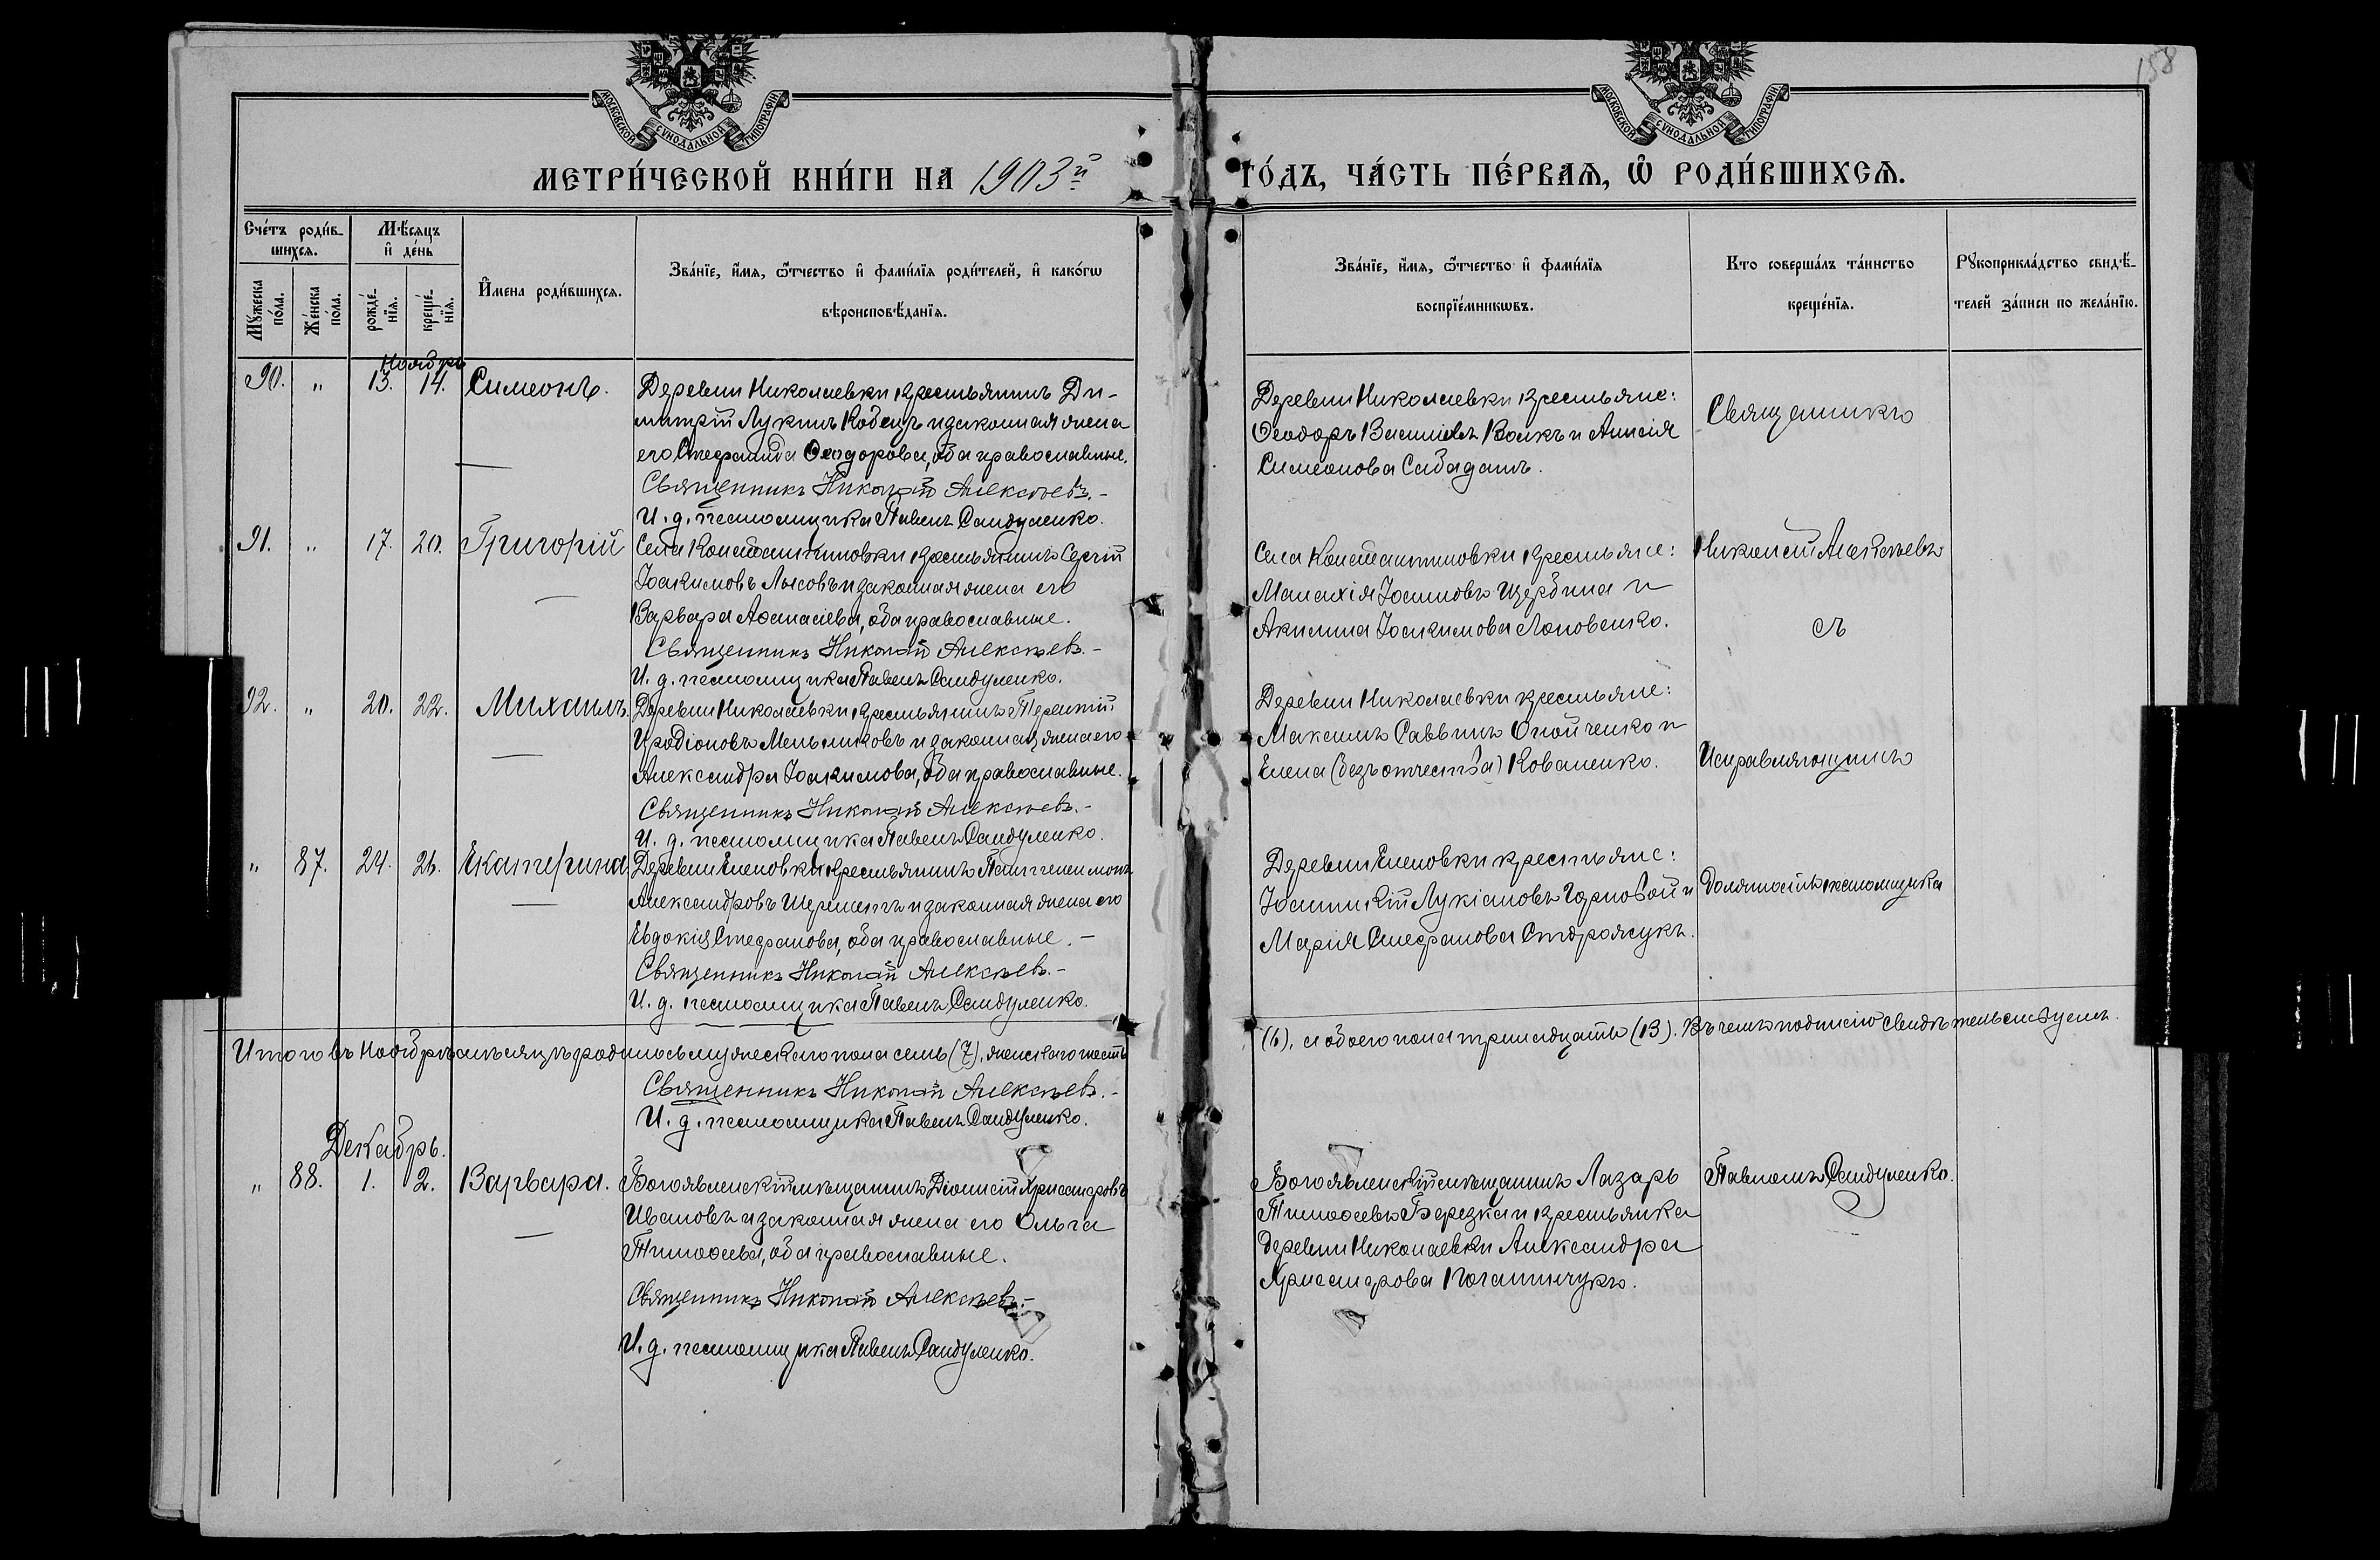 158
МОСКОВСКОЙ СѴНОДАЛЬНОЙ ТИПОГРАФІИ
МОСКОВСКОЙ СѴНОДАЛЬНОЙ ТИПОГРАФІИ
МЕТРИ́ЧЕСКОЙ КНИ́ГИ НА 1903й
ГО́ДЪ, ЧА́СТЬ ПЕ́РВАЯ, Ѡ҆ РОДИ́ВШИХСѦ.
Сче́тъ роди́в-
шихсѧ.
Мꙋ́жеска по́ла.
Же́нска по́ла.
Мѣ́сѧцъ
и҆ де́нь
рожде́-
нїѧ.
креще́-
нїѧ.
И҆́мена роди́вшихсѧ.
Зва́нїе, и҆́мѧ, ѻ҆́тчество и҆ фами́лїѧ роди́телей, и҆ како́гѡ
вѣроисповѣ́данїѧ.
Зва́нїе, и҆́мѧ, ѻ҆́тчество и҆ фами́лїѧ
воспрїе́мникѡвъ.
Кто соверша́лъ та́инство
креще́нїѧ.
Рꙋкоприкла́дство свидѣ́-
телей за́писи по жела́нїю.
Ноябрь
90. " 13. 14. Симеонъ.
Деревни Николаевки крестьянинъ Ди-
митрій Лукинъ Кобецъ и законная жена
его Стефанида Ѳеодорова, оба православные.
Священникъ Николай Алексѣевъ.-
И. д. псаломщика Павелъ Сандуленко.
Деревни Николаевки крестьяне:
Ѳеодоръ Васильевъ Волкъ и Анисія
Симеонова Сабаданъ.
Священникъ
91. " 17. 20. Григорій
Села Константиновки крестьянинъ Сергій
Іоакимовъ Лысовъ и законная жена его
Варвара Аѳанасіева, оба православные.
Священникъ Николай Алексѣевъ.-
И. д. псаломщика Павелъ Сандуленко.
Села Константиновки крестьяне:
Малахія Іоанновъ Щербина и
Акилина Іоакимова Лоповенко.
Николай Алексѣевъ
съ
92. " 20. 22. Михаилъ.
Деревни Николаевки крестьянинъ Терентій
Иродіоновъ Мельниковъ и законная жена его
Александра Іоакимова, оба православные.
Священникъ Николай Алексѣевъ.-
И. д. псаломщика Павелъ Сандуленко.
Деревни Николаевки крестьяне:
Максимъ Саввинъ Онойченко и
Елена (безъ отчества) Коваленко.
Исправляющимъ
" 87. 24. 26. Екатерина
Деревни Еленовки крестьянинъ Пантелеимонъ
Александровъ Шереметъ и законная жена его
Евдокія Стефанова, оба православные. -
Священникъ Николай Алексѣевъ.-
И. д. псаломщика Павелъ Сандуленко.
Деревни Еленовки крестьяне:
Іоанникій Лукіановъ Чарновой и
Марія Стефанова Сторожукъ.
Должность псаломщика
Итого въ Ноябрѣ мѣсяцѣ родилось мужескаго пола семь (7), женскаго шесть
(6), а обоего пола тринадцать (13). Въ чемъ подписью свидѣтельствуемъ.
Священникъ Николай Алексѣевъ.-
И. д. псаломщика Павелъ Сандуленко.
Декабрь.
" 88. 1. 2. Варвара.
Богоявленскій мѣщанинъ Діонисій Хрисанѳовъ
Ивановъ и законная жена его Ольга
Тимоѳеева, оба православные.
Священникъ Николай Алексѣевъ.-
И. д. псаломщика Павелъ Сандуленко.
Богоявленскій мѣщанинъ Лазарь
Тимоѳеевъ Березка и крестьянка
деревни Николаевки Александра
Хрисанѳова
Павломъ Сандуленко.